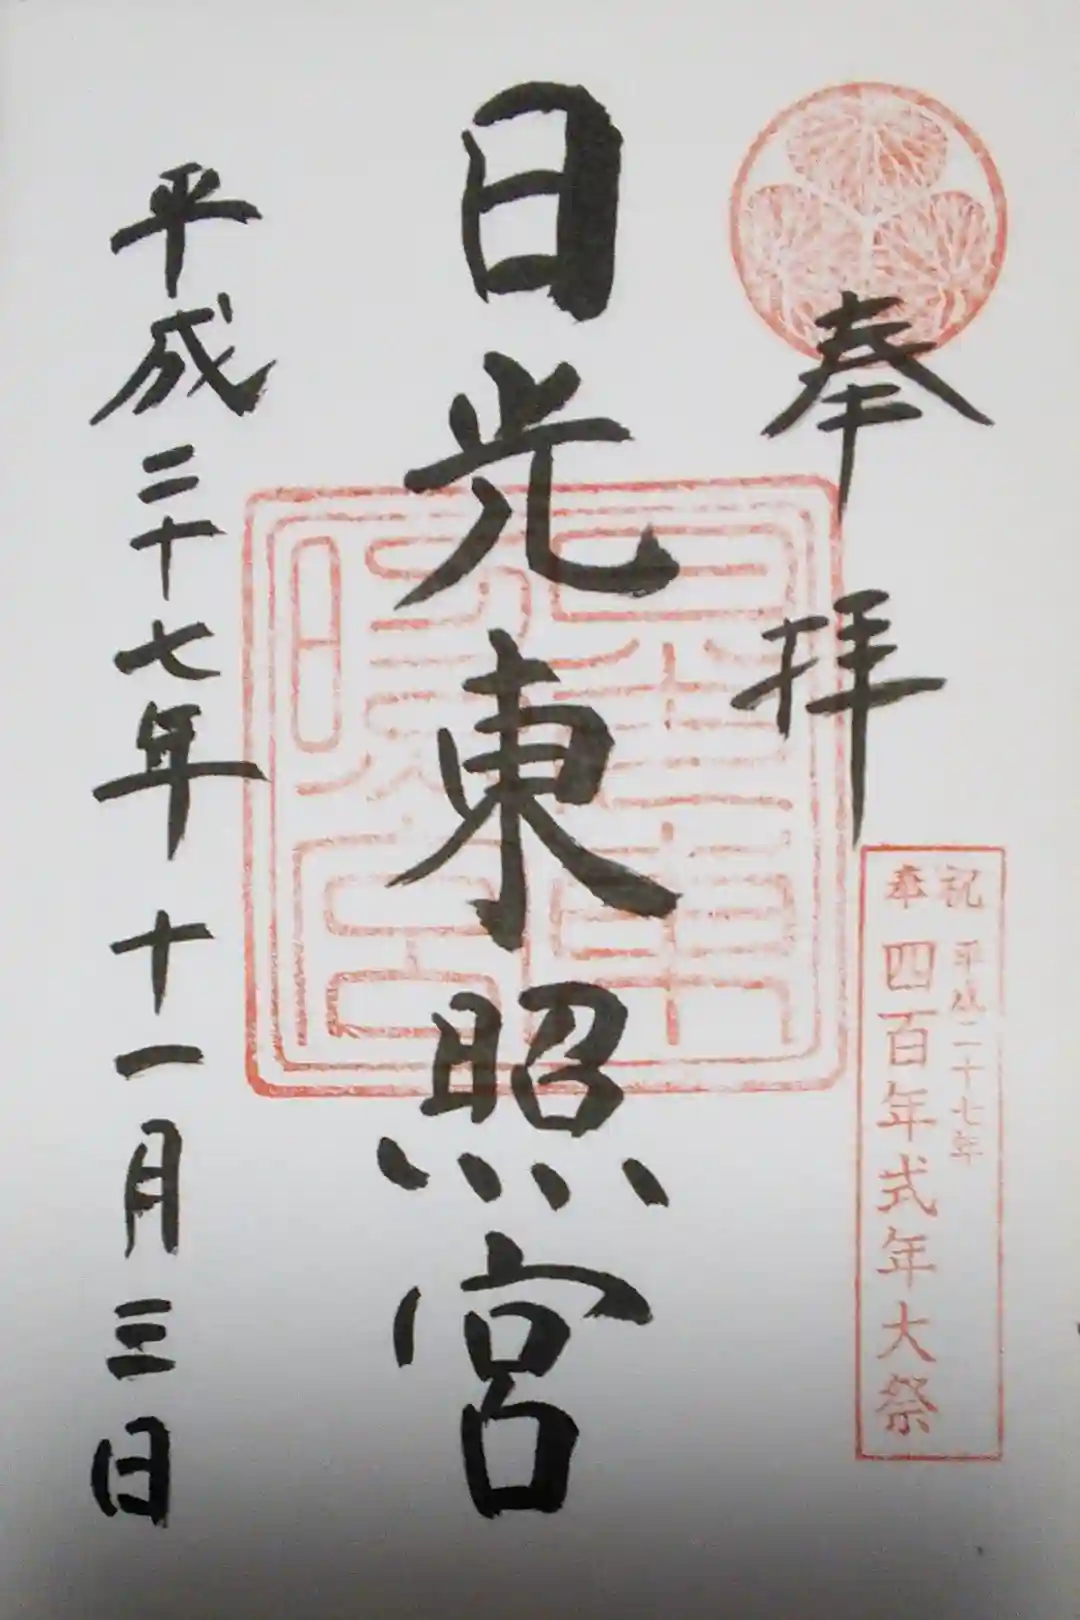 奉拝
祝 平成二十七年
奉 四百年式年大祭
日光東照宮
平成二十七年十一月三日